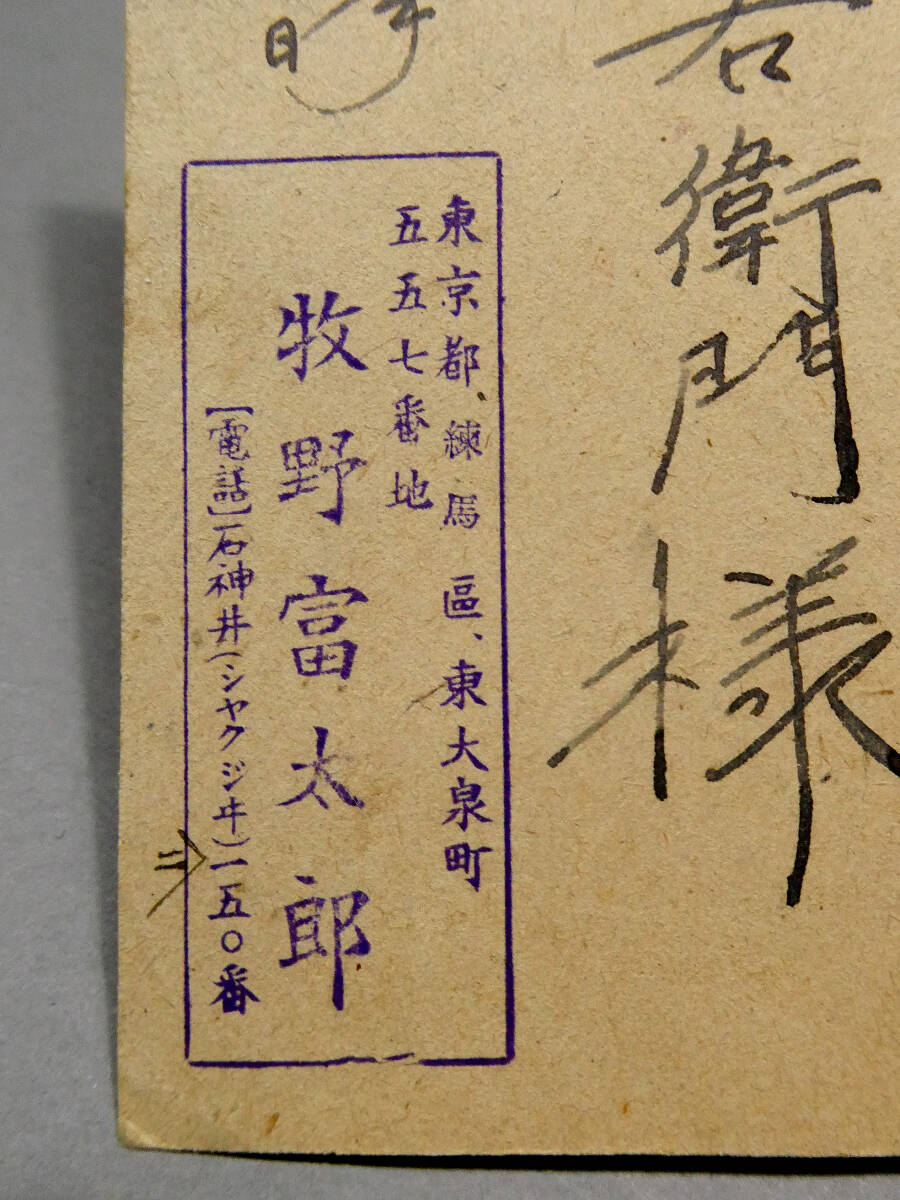 右衛門様
東京都、練馬區、東大泉町
五五七番地
牧野富太郎
【電話】石神井(シヤクジヰ)一五〇番
二
日